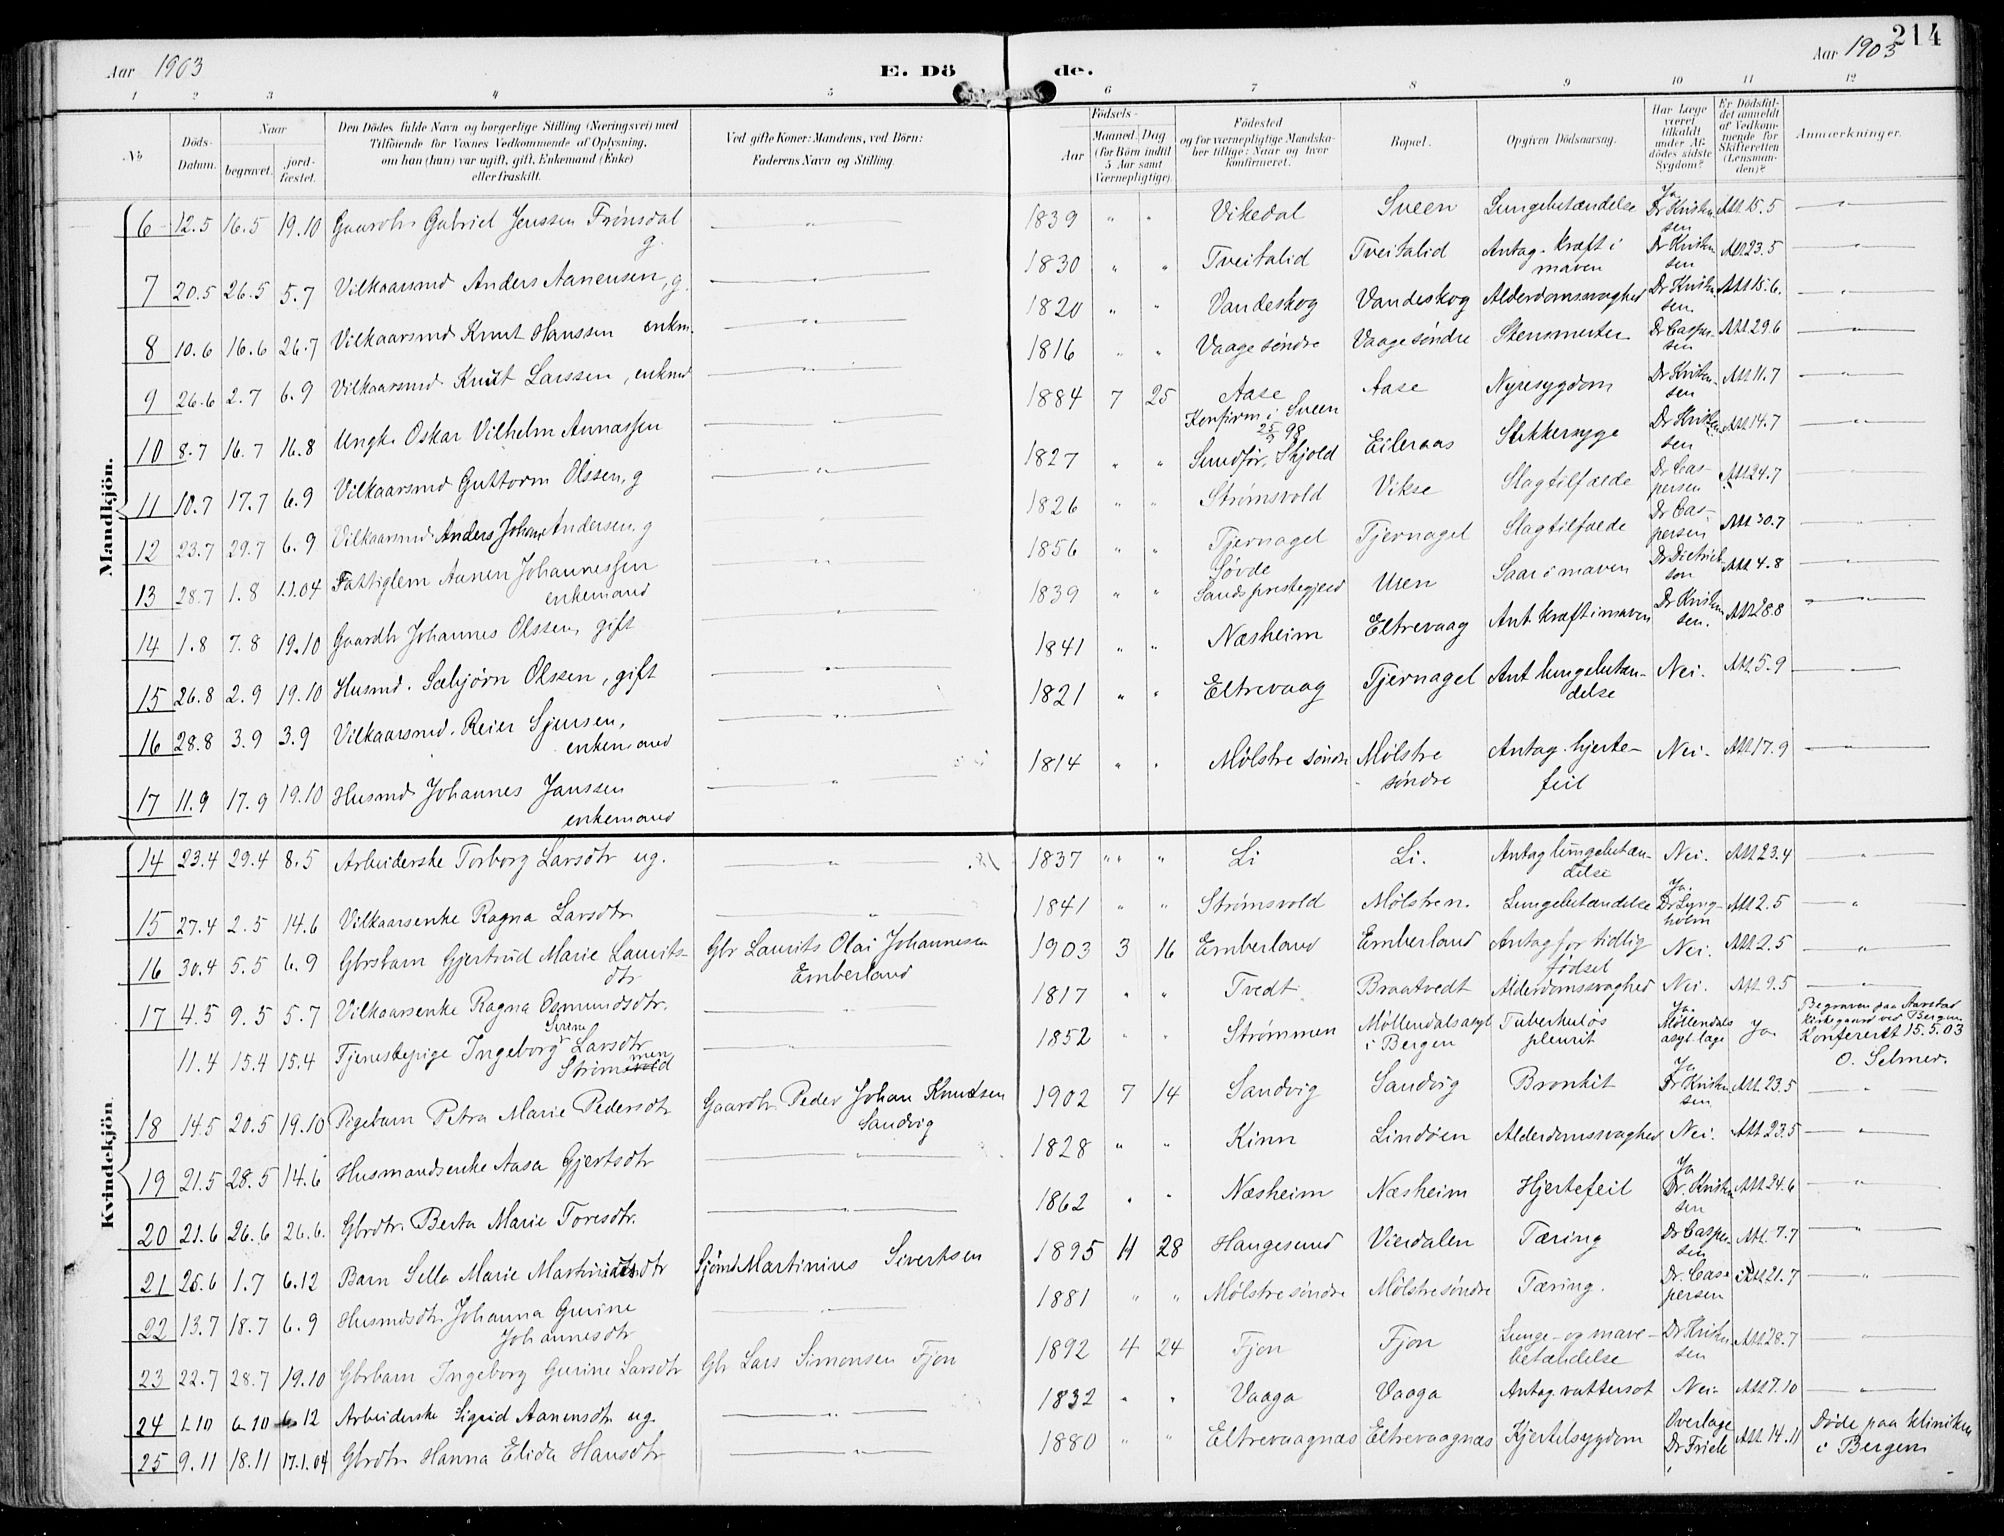 214
Aar 1903
E. Dö
de.
Aar 1903
1 2 3 4 5 6 7 8 9 10 11 12
No
Döds-Datum.
Naar
begravet.
jord-fæstet.
Den Dödes fulde Navn og borgerlige Stilling (Næringsvei) med
Tilföiende for Voxnes Vedkommende af Oplysning,
om han (hun) var ugift, gift, Enkemand (Enke)
eller fraskilt.
Ved gifte Koner: Mandens, ved Börn:
Faderens Navn og Stilling.
Födsels-
Aar
Maaned. Dag
(for Börn indtil
5 Aar samt
Værnepligtige).
Födested
og for værnepligtige Mandska-
ber tillige: Naar og hvor
konfirmeret.
Bopæl.
Opgiven Dödsaarsag.
Har Læge
været
tilkaldt
under Af-
dödes sidste
Sygdom?
Er Dödsfal-
det anmeldt
af Vedkom-
mende for
Skifteretten
(Lensman-
den)?
Anmærkninger.
Mandkjön.
6 12.5 16.5 19.10 Gaardbr. Gabriel Jenssen Frönsdal g. " 1839 " " Vikedal Sveen Lungebetændelse Ja Dr Kristensen Att 15.5 "
7 20.5 26.5 5.7 Vilkaarsmd Anders Aanensen, g. " 1830 " " Tveitalid Tveitalid Antag. kræft i maven Dr Kristensen Att. 23.5 "
8 10.6 16.6 26.7 Vilkaarsmd Knut Hanssen enkm. " 1820 " " Vandeskog Vandeskog Alderdomssvaghed Dr Kristensen Att 15.6. "
9 26.6 2.7 6.9 Vilkaarsmd Knut Larssen, enkmd " 1816 " " Vaage söndre Vaage söndre Stensmerter Dr Caspersen Att 29.6 "
10 8.7 16.7 16.8 Ungk. Oskar Vilhelm Annassen " 1884 7 25 Aase Konfirm i Sveen 25/9 98 Aase Nyresygdom Dr Kristensen Att 11.7 "
11 10.7 17.7 6.9 Vilkaarsmd Guttorm Olssen, g " 1827 " " Sundför, Skjold Eileraas Slikkersyge Dr Kristensen Att 14.7 "
12 23.7 29.7 6.9 Vilkaarsmd. Anders Johan Andersen, g " 1826 " " Strömsvold Vikse Slagtilfælde Dr Caspersen Att 24.7 "
13 28.7 1.8 1.1.04 Fattiglem Aanen Johannessen enkemand " 1856 " " Tjernagel Tjernagel Slagtilfælde Dr Caspersen Att 30.7 "
14 1.8 7.8 19.10 Gaardbr Johannes Olssen, gift " 1839 " " Jövde Sands prestegjeld Uren Saar i maven Dr Dietrichson Att 4.8 "
15 26.8 2.9 19.10 Husmd. Sæbjörn Olssen, gift " 1841 " " Næsheim Eltrevaag Ant. kræft i maven Dr Kristensen. Att 28.8 "
16 28.8 3.9 3.9 Vilkaarsmd. Reier Sjursen, enkemand " 1821 " " Eltrevaag Tjernagel Ant lungebetændelse Nei. Att 5.9 "
17 11.9 17.9 19.10 Husmd Johannes Janssen enkemand " 1814 " " Mölstre söndre Mölstre söndre Antag. hjertefeil Nei. Att 17.9 "
Kvindekjön
14 23.4 29.4 8.5 Arbeiderske Torborg Larsdtr ug. " 1837 " " " Li Li. Antag lungebetændelse Nei. Att 23.4 "
15 27.4 2.5 14.6 Vilkaarsenke Ragna Larsdtr " 1841 " " Strömsvold Mölstren. Lungebetændelse Ja. Dr Lyngholm Att 2.5 "
16 30.4 5.5 6.9 Gbrsbarn Gjertrud Marie Lauritsdtr Gbr Laurits Olai Johannesen Emberland 1903 3 16 Emberland Emberland Antag for tidlig födsel Nei. Att 2.5 "
17 4.5 9.5 5.7 Vilkaarsenke Ragna Osmundsdtr. " 1817 " " Tvedt Braatvedt Alderdomssvaghed Nei. Att 9.5 "
11.4 15.4 15.4 Tjenestepige Ingeborg Serine Larsdtr Strömmen " 1852 " " Strömmen Möllendalsasyl i Bergen Tuberkulös pleurit Ja. Möllendals asyl læge Ja Begraven paa Aarstad Kirkegaard ved Bergen Konfereret 15.5.03 O. Selmer.
18 14.5 20.5 19.10 Pigebarn Petra Marie Pedersdtr Gaardbr. Peder Johan Knutsen Sandvig 1902 7 14 Sandvig Sandvig Bronkit Ja Dr Kristensen Att. 23.5 "
19 21.5 28.5 14.6 Husmandsenke Aasa Gjertsdtr " 1828 " " Kinn Lindöen Alderdomssvaghed Nei. Att 23.5 "
20 21.6 26.6 26.6. Gbrdtr. Berta Marie Toresdtr. " 1862 " " Næsheim Næsheim Hjertefeil Ja Dr. Kristensen Att 24.6 "
21 25.6 1.7 6.12 Barn Sella Marie Martiniusdtr Sjömd Martinius Sivertsen 1895 11 28 Haugesund Vierdalen Tæring Dr Caspersen Att. 7.7 "
22 13.7 18.7 6.9 Husmdsdtr. Johanna Gurine Johannesdtr " 1881 " " Mölstre söndre Mölstre söndre Tæring. Dr. Caspersen Att 21.7 "
23 22.7 28.7 19.10 Gbrbarn Ingeborg Gurine Larsdtr Gbr Lars Simonsen Fjon 1892 4 24 Fjon Fjon Lunge- og mavebetændelse Dr Kristensen Att 28.7 "
24 1.10 6.10 6.12 Arbeiderske Sigrid Aanensdtr ug. " 1832 " " Vaaga Vaaga Antag vattersot Nei. Att 7.10 "
25 9.11 18.11 17.1.04 Gbrdtr. Hanna Elida Hansdtr " 1880 " " Eltrevaagnæs Eltrevaagnæs Kjertelsygdom Overlæge Dr Friele Att. 14.11 Döde paa kliniken i Bergen